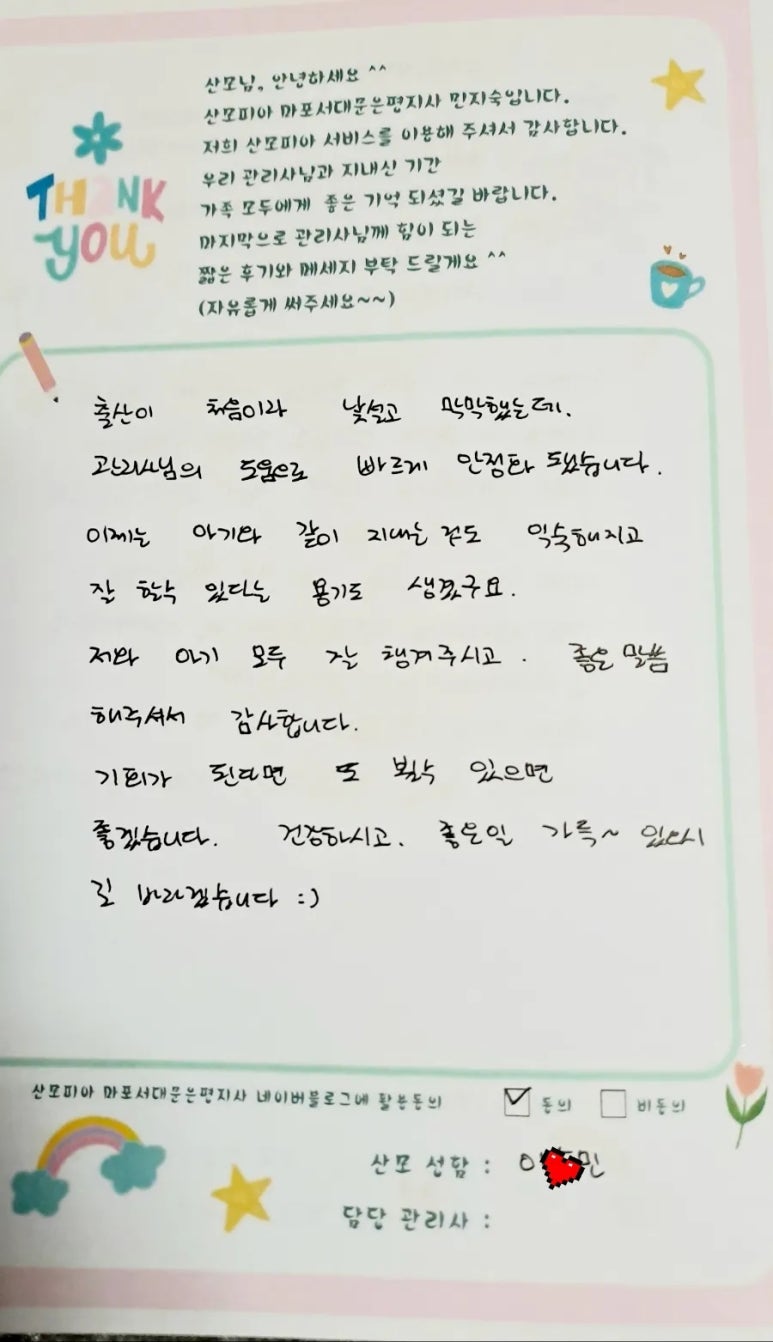 산모님, 안녕하세요 ^^
산모피아 마포서대문은평지사 민지숙입니다.
저희 산모피아 서비스를 이용해 주셔서 감사합니다.
우리 관리사님과 지내신 기간
가족 모두에게 좋은 기억 되셨길 바랍니다.
마지막으로 관리사님께 힘이 되는
짧은 후기와 메세지 부탁 드릴게요 ^^
(자유롭게 써주세요~~)
THANK
YOU
출산이 처음이라 낯설고 막막했는데.
관리사님의 도움으로 빠르게 안정화 됐습니다.
이제는 아기와 같이 지내는 것도 익숙해지고
잘 할수 있다는 용기도 생겼구요.
저와 아기 모두 잘 챙겨주시고. 좋은 말씀
해주셔서 감사합니다.
기회가 된다면 또 뵐수 있으면
좋겠습니다. 건강하시고. 좋은일 가득~ 있으시
길 바라겠습니다 :)
산모피아 마포서대문은편지사 네이버블로그에 활용동의 동의 비동의
산모 선함 : 이 민
담당 관리사 :